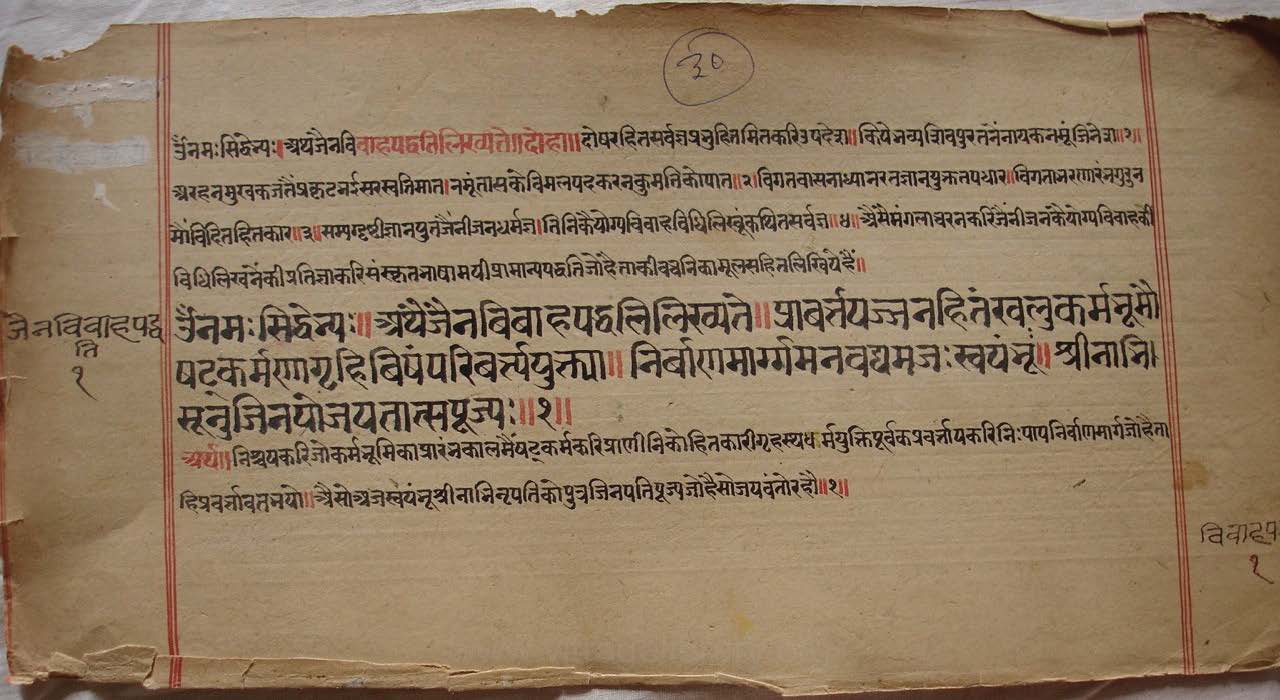 ३०
ॐनमःसिद्धेभ्यः॥अथजैनविवाहपद्धतिलिख्यते॥दोहा॥दोषरहितसर्वज्ञप्रभुहितमितकरिउपदेश॥कियेभव्यशिवपुरतनेंनायकनमूंजिनेश॥१॥
अरहनमुखकजतैंप्रकृटभईसरस्वतिमात।नमूंतासकेविमलपदकरनकुमतिकोघात॥२॥विगतवासनाध्यानरतज्ञानयुक्ततपधार॥
मोंविदितहितकार॥३॥सम्यग्दृष्टीज्ञानयुतजैंनीजनधर्मज्ञ।तिनिकैयोग्यविवाहविधिलिखूंकथितसर्वज्ञ॥४॥अैंसैमंगलाचरनकरिजैंनीजनकैयोग्यविवाहकी
विधिलिखनेंकीप्रतिज्ञाकरिसंस्कृतभाषामयीप्रामान्यपद्धतिजोहैताकीवचनिकामूलसहितलिखियेहैं॥
जैनविवाहपद्ध
ति
१
ॐनमःसिद्धेभ्यः॥अथैजैनविवाहपद्धतिलिख्यते॥प्रावर्त्तयज्जनहितंखलुकर्मभूमौ
षट्कर्मणागृहिविषंपरिवर्त्त्ययुक्त्या॥निर्वाणमार्ग्गमनवद्यमजःस्वयंभूं॥श्रीनाभि।
सूनुजिनपोजयतात्सपूज्यः॥१॥
अर्थ॥निश्चयकरिजोकर्मभूमिकाप्रारंभकालमैंषट्कर्मकरिप्राणीनिकोहितकारीगृहस्थधर्मयुक्तिपूर्वकप्रवर्त्तायकरिनिःपापनिर्वाणमार्गजोहैता
हिप्रवर्त्तावतभयो॥अैसोअजस्वयंभूश्रीनाभिनृपतिकोपुत्रजिनपतिपूज्यजोहैसोजयवंतोरहौ॥१॥
विवाहप
१